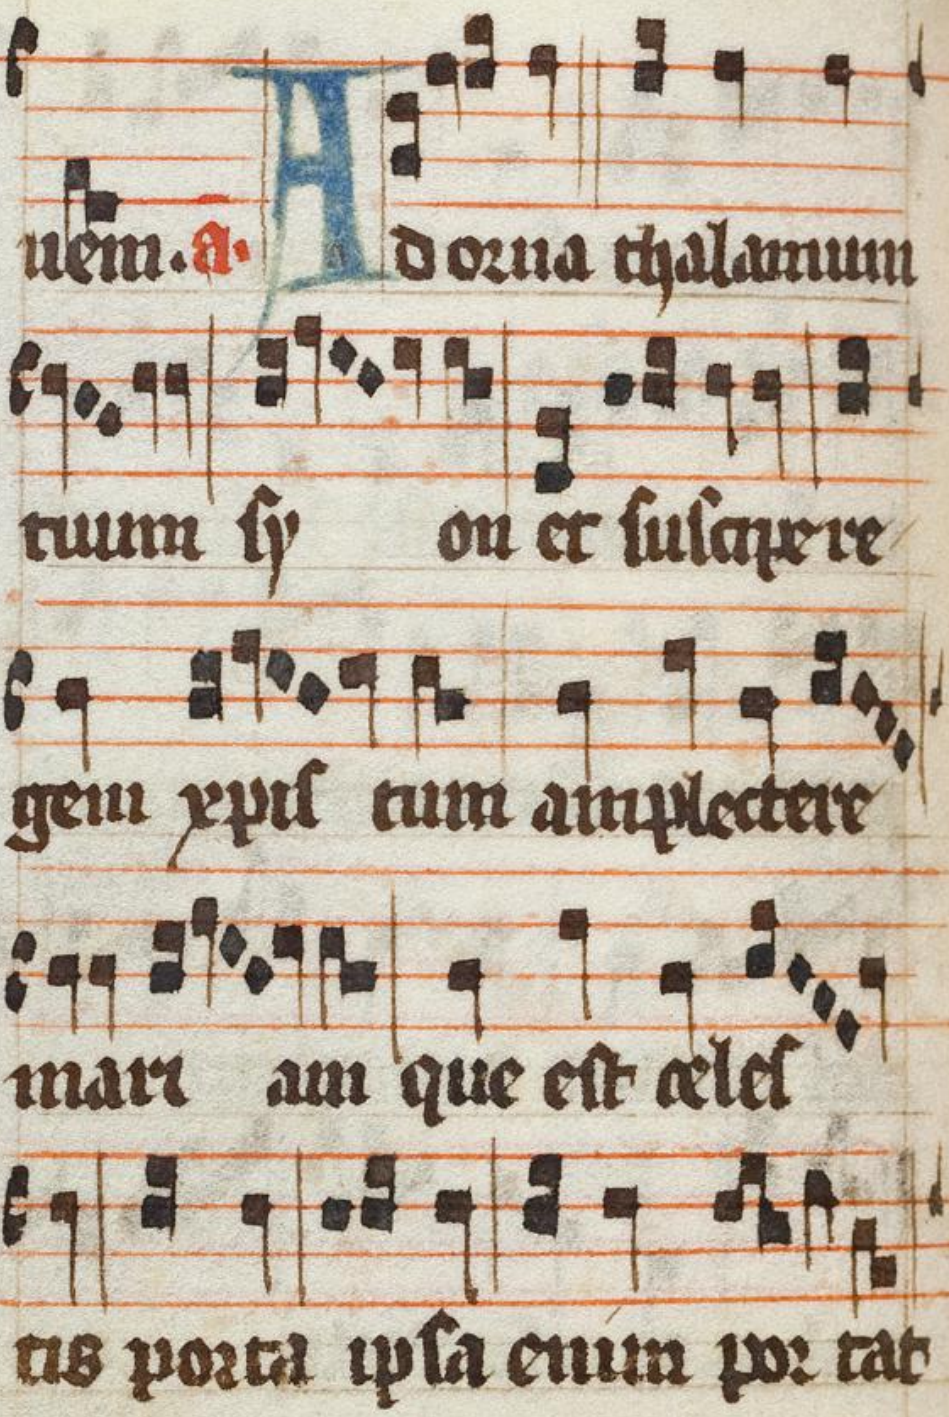 uem. a. Adorna thalamum
tuum sy on et suscipere
gem xpis tum amplectere
mari am que est celes
tis porta ipsa enim por tat